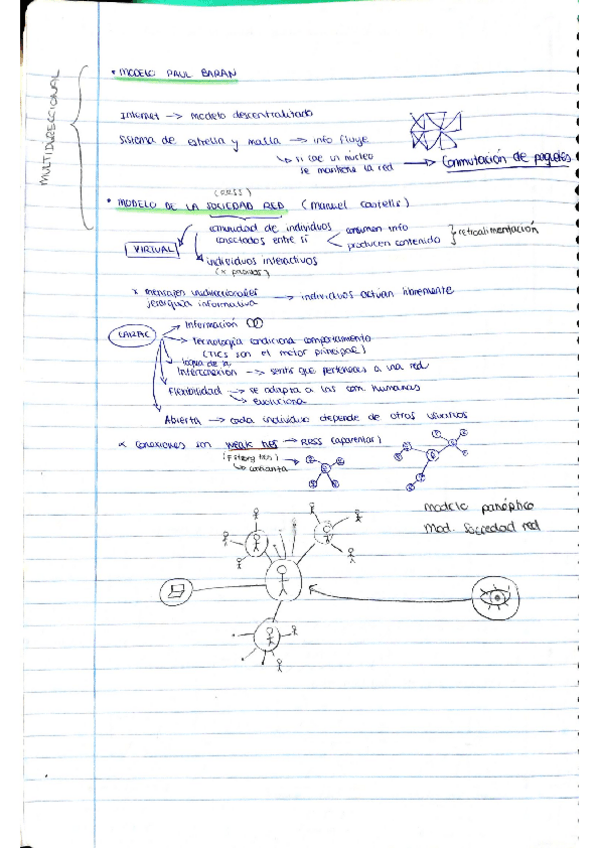 MULTIDIRECCIONAL
• MODELO PAUL BARAN
Internet --> modelo descentralitado
Sistema de estrella y malla --> info fluye
↳ si cae un núcleo
se mantiene la red --> Conmutación de paquetes
(RRSS)
• MODELO DE LA SOCIEDAD RED (Manuel Castells)
comunidad de individuos
conectados entre sí
consumen info
producen contenido
retroalimentación
VIRTUAL
individuos interactivos
x mensajes unidireccionales
jerarquía informativa --> individuos actúan libremente
CARAC
Información
Tecnología condiciona comportamiento
(TICs son el motor principal)
lógica de la
Interconexión --> sentir que perteneces a una red
Flexibilidad --> se adapta a las com humanas
evoluciona
Abierta --> cada individuo depende de otros
Conexiones son weak ties --> RRSS (aparentar)
(≠ strong ties)
↳ confianza
modelo panóptico
Mod. Sociedad red